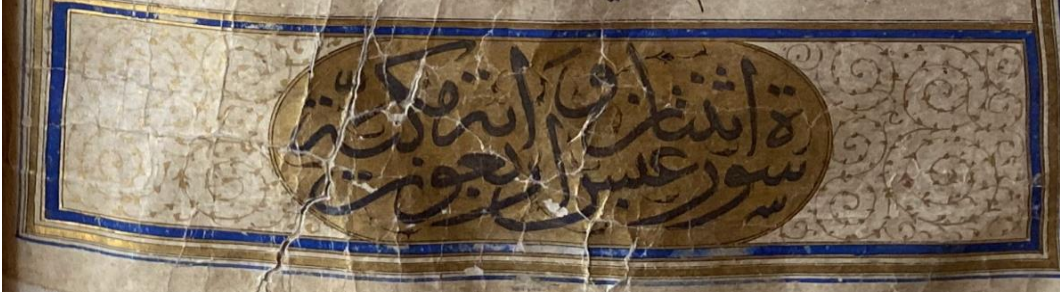 سورة عبس اثنتان و اربعون اية مكية